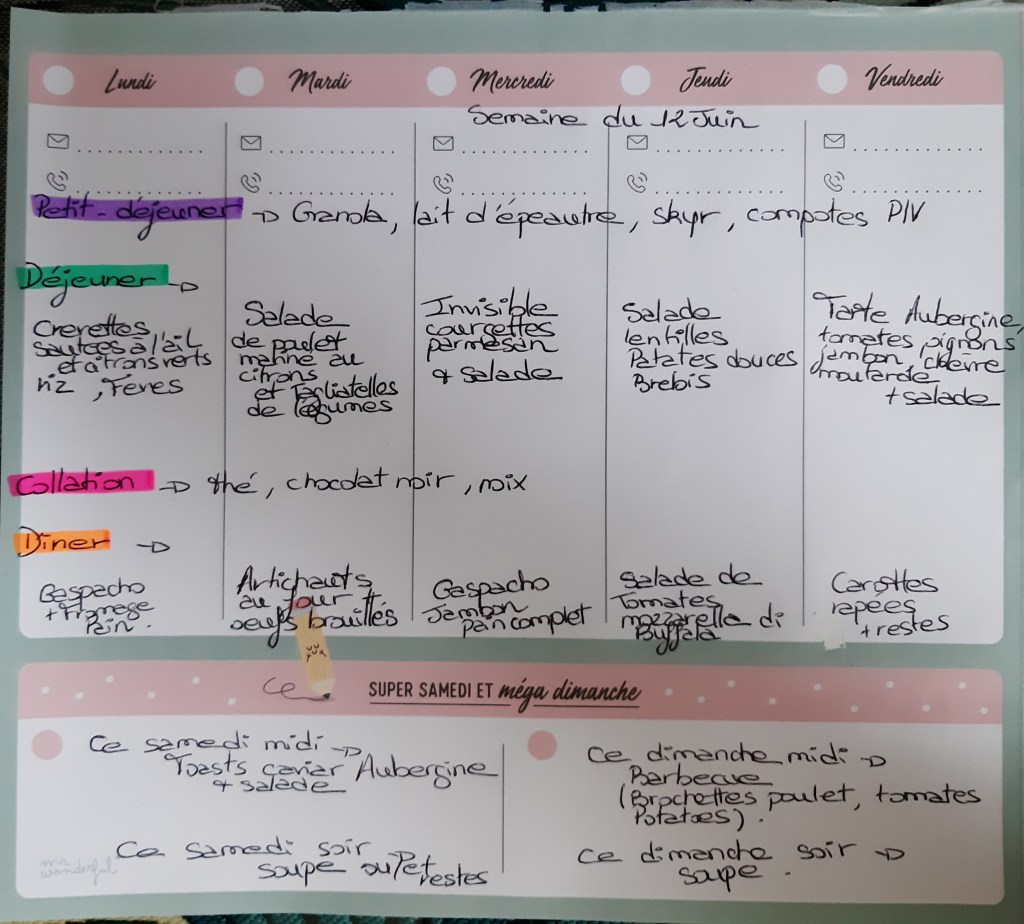 Lundi
Mardi
Mercredi
Jeudi
Vendredi
Semaine du 12 Juin
Petit-déjeuner → Granola, lait d'épeautre, skyr, compotes PIV
Déjeuner →
Crevettes
sautées à l'ail
et citrons verts
riz, Fèves
Salade
de poulet
mariné au
citrons
et Tagliatelles
de légumes
Invisible
courgettes
parmesan
& salade
Salade
lentilles
Patates douces
Brebis
Tarte Aubergine,
tomates pignons
jambon chèvre
moutarde
+ salade
Collation → thé, chocolat noir, noix
Diner →
Gaspacho
+ Fromage
Pain.
Artichauts
au four +
oeufs brouillés
Gaspacho
Jambon
pain complet
Salade de
Tomates
mozzarella di
Buffala
Carottes
rapées
+ restes
Ce
SUPER SAMEDI ET méga dimanche
Ce samedi midi →
Toasts caviar Aubergine
& salade
Ce samedi soir
soupe ou/et restes
Ce dimanche midi →
Barbecue
(Brochettes poulet, tomates
Potatoes).
Ce dimanche soir →
soupe.
mr
wonderful